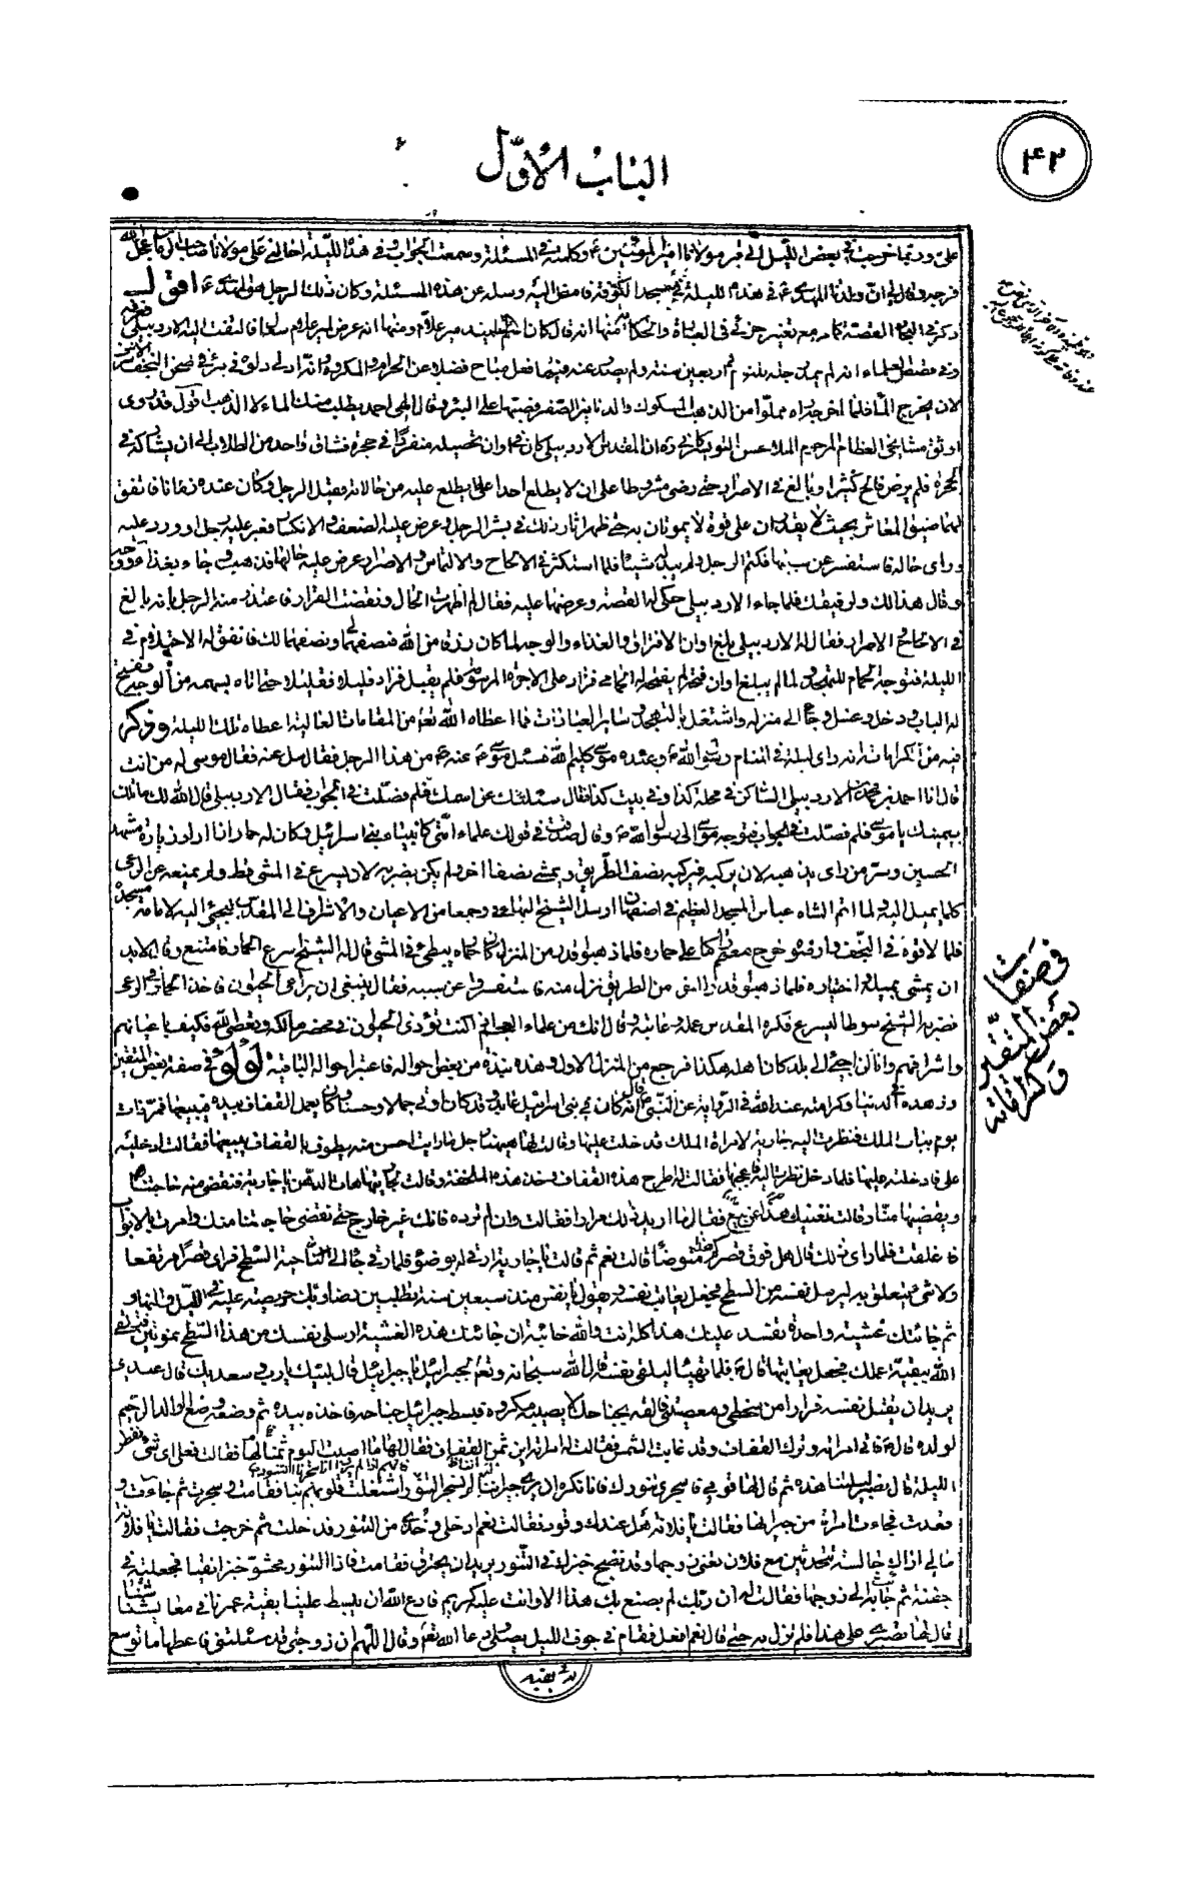 ۴۲
الباب الاوّل
على وربما خرجت في بعض الليل الى قبر مولانا امير المؤمنين ع وكلمته في المسئلة وسمعت الجواب وفي هذا الليلة احالني على مولانا صاحب الزمان عجل الله
فرجه وقال لي انّ ولدنا المهدى ع في هذه الليلة في مسجد الكوفة فامض اليه وسله عن هذه المسئلة وكان ذلك الرجل هو المهدى ع اقول
ذكر في القصة كما مر مع تغيير جزئى في العبارة
لان يخرج الماء فلما اخرجه راه مملوّا من الذهب المسكوك والدنانير الصفر فصبّها على البئر وقال الهى احمد يطلب منك الماء لا الذهب اقول قد روى
الحجرة فلم يرض فالح كثيرا وبالغ في الاصرار حتى رضى مشروطا على ان لا يطلع احدا على ما يطلع عليه من حالاته فقبل الرجل وكان عنده زمانا فاتفق
لهما ضيق المعاش بحيث لا يقدران على قوة لا يموتان به حتى ظهر اثار ذلك في بشر الرجل وعرض عليه الضعف والانكسار فعبر عليه رجل او ورد عليه
وراى حاله فاستفسر عن سببها فكتم الرجل ولم يبد له شيئا فلما استكثر في الالحاح والالتماس والاصرار عرض عليه حالهما فذهب وجاء بغذاء ووجه
وقال هذا لك ولرفيقك فلما جاء الاردبيلى حكى له القصة وعرضها عليه فقال لم اظهرت الحال ونقضت القرار فاعتذر منه الرجل بانه بالغ
في الالحاح والاصرار فقال له الاردبيلى بلغ اوان الافتراق والغذاء والوجه لما كان رزقا من الله فنصفهما ونصفهما لك فاتفق له الاحتلام في
الليلة فتوجه الى الحمام للتهجد
له الباب ودخل وغسل ورجع الى منزله واشتغل بالتهجد وسائر العبادات فما اعطاه الله تعم من المقامات العالية اعطاه تلك الليلة وذكر
فيه من كراماته انه راى ليلة في المنام رسول الله ص وعنده موسى كليم الله فسئل موسى ع عنه ص من هذا الرجل فقال سل عنه فقال موسى له من انت
قال انا احمد بن محمد الاردبيلى الساكن في محلة كذا وفي بيت كذا فقال سئلتك عن اسمك فلم فصّلت في الجواب فقال الاردبيلى قال الله لك ما تلك
بيمينك يا موسى فلم فصّلت في الجواب فتوجه موسى الى رسول الله ص وقال صدقت في قولك علماء امتى كانبياء بنى اسرائيل وكان له حمار اذا اراد زيارة مشهد
الحسين وسر من راى يذهبه لان يركبه فيركبه نصف الطريق ويمشى نصفا اخر ولم يكن يضربه لا ليسرع في المشى قط ولم يمنعه عن الرعى
كلما يميل اليه ولما اتم الشاه عباس المسجد العظيم في اصفهان ارسل الشيخ البهائى وجمعا من الاعيان والاشراف الى المقدس ليجيئ اليه لامامة مسجده
فلما لاقوه في النجف وارضوه خرج معهم راكبا على حماره فلما ذهبوا قدرا من المنزل كان حماره يبطئ في المشى قال له الشيخ اسرع الحمار فامتنع وقال لا بد
ان يمشى بميله واختياره فلما ذهبوا قدرا اخر من الطريق نزل منه فاستفسروا عن سببه فقال ينبغى ان يراعى الحيوان فاخذ الحمار في الرعى
فضربه الشيخ سوطا ليسرع فكره المقدس عمله وعاتبه وقال انك من علماء العجم اكنت تؤذى الحيوان في محضر مالكه وتعصى الله فكيف باعيانهم
واشرافهم وانا لن اجيئ الى بلد كان اهله هكذا فرجع من المنزل الاول وهذه نبذة من بعض احواله فاعتبر احواله الباقية لؤلؤ في صفة بعض المتقين
وزهده في الدنيا وكرامته عند الله في الرواية عن النبى ص انه قال كان في بنى اسرائيل عابد وقد كان اوتى جمالا وحسنا وكان يعمل القفاف بيده فيبيعها فمر ذات
يوم بباب الملك فنظرت اليه جارية لامراة الملك فدخلت عليها وقالت لها هيهنا رجل ما رايت احسن منه يطوف بالقفاف يبيعها فقالت ادخليه
على فادخلته عليها فلما دخل نظرت اليه فاعجبها فقالت له اطرح هذه القفاف وخذ هذه الملحفة وقالت لجاريتها هات الدهن يا جارية فنقضى منه حاجتنا
ويقضيها منا وقالت نغنيك هذا عن بيع فقال ما اريد ذلك مرارا فقالت وان لم ترده فانك غير خارج حتى تقضى حاجتنا منك وامرت بالابواب
فاغلقت فلما راى ذلك قال هل فوق قصركم هذا متوضا قالت نعم ثم قالت يا جارية ارقى له بوضوء فلما رقى جاء الى ناحية السطح فراى قصرا مرتفعا
ولا شئ يتعلق به ليرسل نفسه من السطح فجعل يعاتب نفسه ويقول يا نفس منذ سبعين سنة تطلبين رضا ربك حريصة عليه في الليل والنهار
ثم جائتك عشية واحدة تفسد عليك هذا كله انت والله خائبة ان جائتك هذه العشية ارسلى نفسك من هذا السطح تموتين فتلقى
الله ببقية عملك فجعل يعاتبها قال ص فلما تهيئا ليلقى نفسه قال الله سبحانه وتعم لجبرائيل يا جبرائيل قال لبيك يا رب وسعديك قال عبدى
يريد ان يقتل نفسه فرارا من سخطى ومعصيتى فالقه بجناحك لا يصيبه مكروه فبسط جبرائيل جناحه فاخذه بيده ثم وضعه وضع الوالد الرحيم
لولده قال ص فاتى امراته وترك القفاف وقد غابت الشمس فقالت له امراته اين ثمن القفاف فقال لها ما اصبت اليوم ثمنا لها فقالت فعلى اى شئ نفطر
الليلة قال نصبر ليلتنا هذه ثم قال لها قومى فاسجرى تنورك فانا نكره ان يرى جيراننا
فقعدت فجاءت امراة من جيرانها فقالت يا فلانة هل عندك وقود فقالت نعم ادخلى وخذى من التنور فدخلت ثم خرجت فقالت يا فلانة
ما لى اراك جالسة تتحدثين مع فلان تعنى زوجها وقد نضج خبزك في التنور يريدان يحترق فقامت فاذا التنور محشو خبزا نقيا فجعلته في
جفنة ثم جاءت به الى زوجها فقالت له ان ربك لم يصنع بك هذا الا وانت عليه كريم فادع الله ان يبسط علينا بقية عمرنا في معايشنا
قال لها تصبرى على هذا فلم تزل به حتى قال نعم افعل فقام في جوف الليل يصلى ودعا الله تعم وقال اللهم ان زوجتى قد سئلتنى فاعطها ما توسع
به بقية
في صفات
بعض المتقين
وكراماته